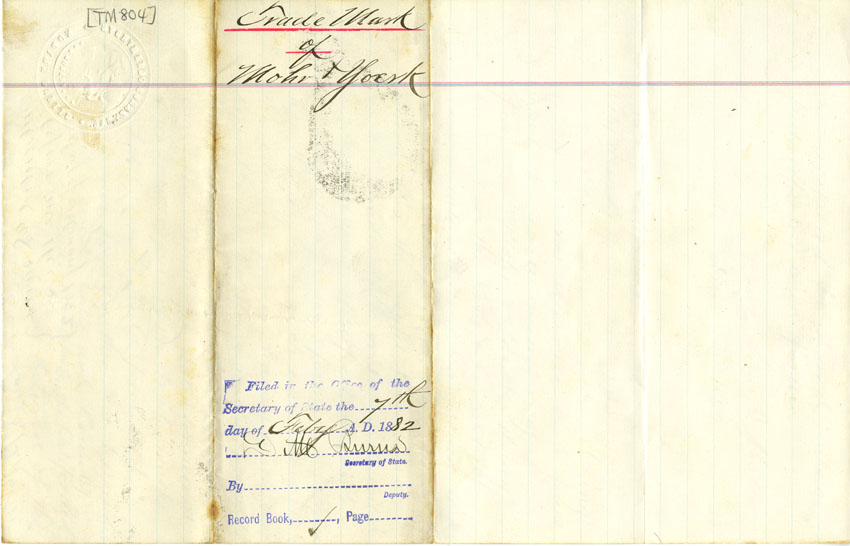 [TM 804]
Trade Mark
of
Mohr & Yoerk
Filed in the Office of the
Secretary of State the 7th
day of Feby A. D. 1882
Burns
Secretary of State.
By
Deputy.
Record Book, , Page